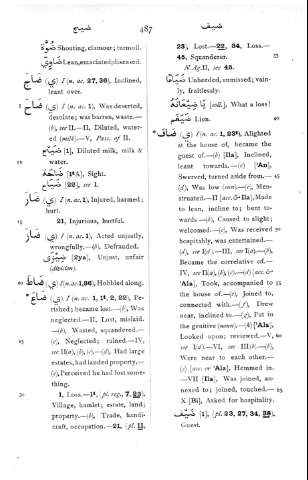 ضيح
487
ضيف
ضُوَّة Shouting, clamour; turmoil.
Lean, emaciated; diseased.
ضَاجَ (ي) I (n. ac. 27, 36), Inclined,
leant over.
(ي) I (n. ac. 1), Was deserted,
desolate; was barren, waste.—
(b), see II.—II, Diluted, water-
ed (milk).—V, Pass. of II.
[1], Diluted milk, milk &
water.
[1tA], Sight.
[22], see 1.
ضَازَ (ي) I (n. ac. 1), Injured, harmed;
hurt.
21, Injurious, hurtful.
(ي) I (n. ac. 1), Acted unjustly,
wrongfully.—(b), Defrauded.
[2ya], Unjust, unfair
(division).
ضَاطَ (ي) I (n. ac. 1, 36), Hobbled along.
ضَاعَ (ي) I (n. ac. 1, 1t, 2, 22), Pe-
rished; became lost.—(b), Was
neglected.—II, Lost, mislaid.
—(b), Wasted, squandered.—
(c), Neglected; ruined.—IV,
see II(a), (b), (c).—(d), Had large
estates, had landed property.—
(e), Perceived he had lost some-
thing.
1, Loss.—1t, (pl. reg., 7, 23),
Village, hamlet; estate, land;
property.—(b), Trade, handi-
craft, occupation.—21, (pl. 11,
23), Lost.—22, 34, Loss.—
45, Squanderer.
N. Ag. II, see 45.
ضَيَاعًا Unheeded, unmissed; vain-
ly, fruitlessly.
يَا ضَيْعَتَاهُ [coll.], What a loss!
ضَيْغَم Lion.
ضَافَ (ي) I (n. ac. 1, 23t), Alighted
at the house of, became the
guest of.—(b) [Ila], Inclined,
leant towards.—(c) ['An],
Swerved, turned aside from.—
(d), Was low (sun).—(e), Men-
struated.—II [acc. & Ila], Made
to lean, incline to; bent to-
wards.—(b), Caused to alight;
welcomed.—(c), Was received
hospitably, was entertained.—
(d), see I(d).—III, see II(b).—(b),
Became the correlative of.—
IV, see II(a), (b), (c).—(d) [acc. &
'Ala], Took, accompanied to
the house of.—(e), Joined to,
connected with.—(f), Drew
near, inclined to.—(g), Put in
the genitive (noun).—(h) ['Ala],
Looked upon; reviewed.—V,
see I(d).—VI, see III(b).—(b),
Were near to each other.—
(c) [acc. or 'Ala], Hemmed in.
—VII [Ila], Was joined, an-
nexed to; joined, touched.—
X [Bi], Asked for hospitality.
ضَيْف [1], (pl. 23, 27, 34, 35),
Guest.